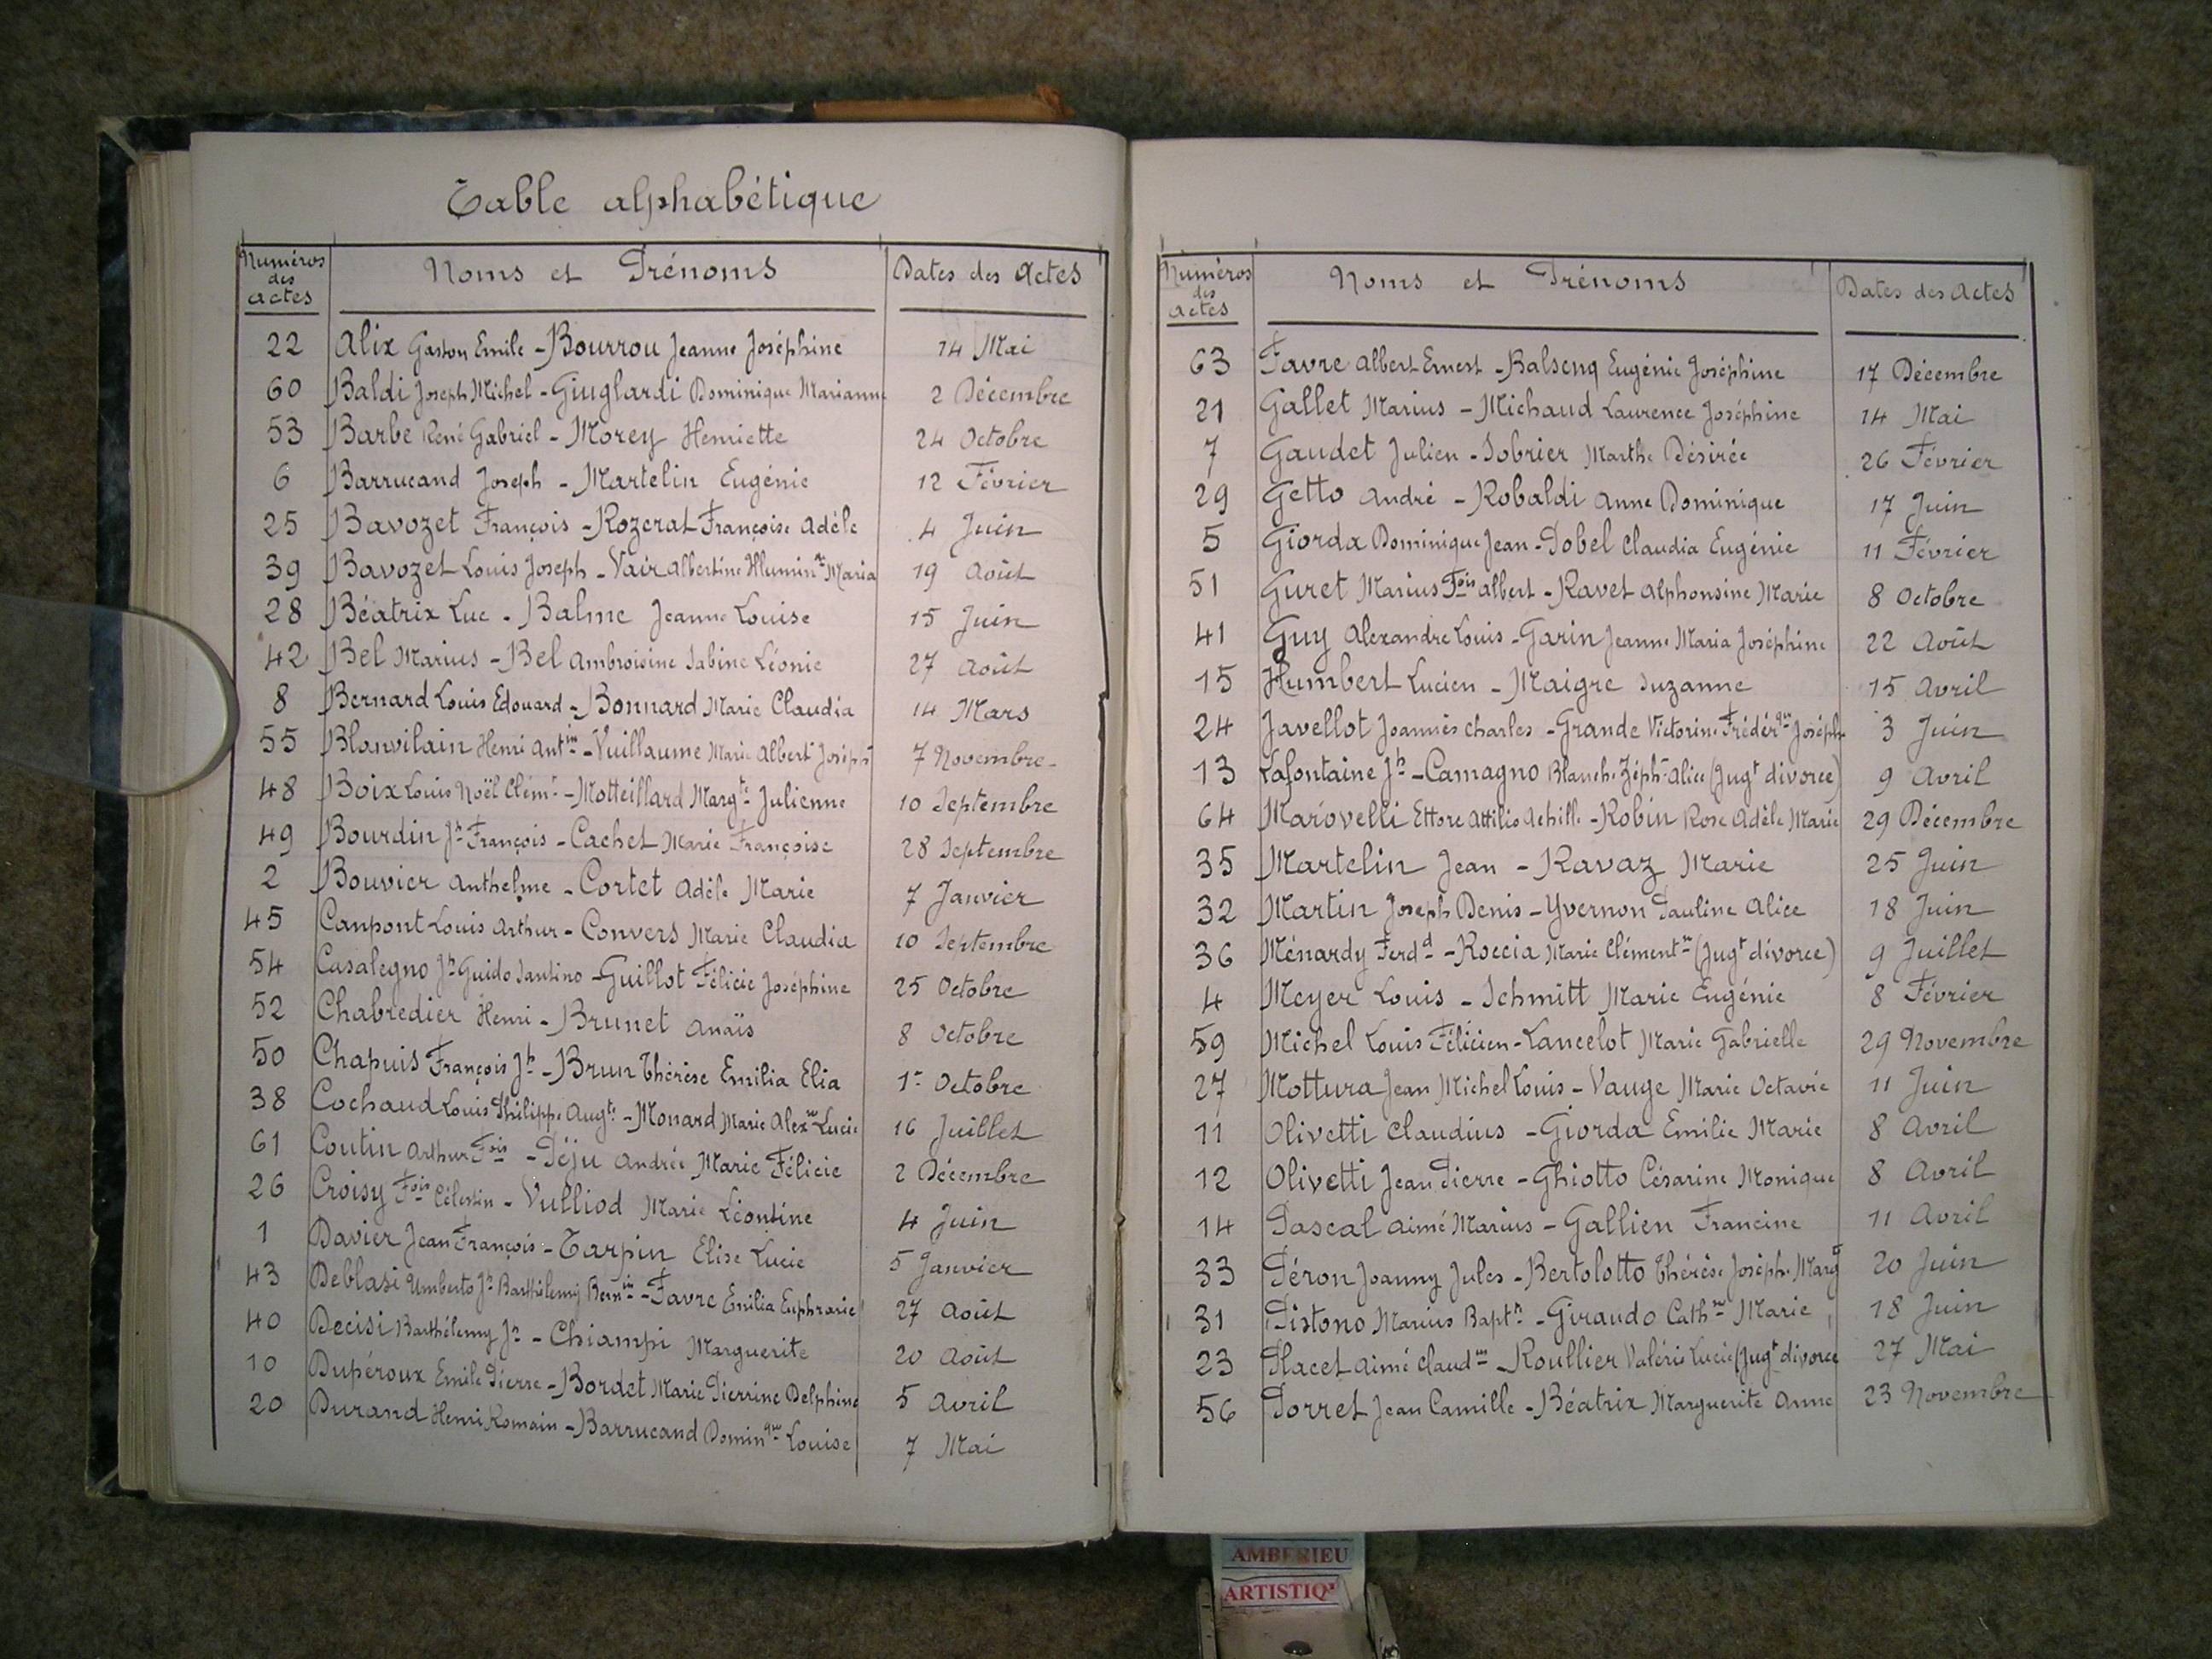 Table alphabétique
Numéros des actes Noms et Prénoms Dates des Actes
22 Alix Gaston Emile - Bourrou Jeanne Joséphine 14 Mai
60 Baldi Joseph Michel - Giuglardi Dominique Marianne 2 Décembre
53 Barbe René Gabriel - Morey Henriette 24 Octobre
6 Barrucand Joseph - Martelin Eugénie 12 Février
25 Bavozet François - Rozerat Françoise Adèle 4 Juin
39 Bavozet Louis Joseph - Vair Albertine Illumin^ée Maria 19 Août
28 Béatrix Luc - Balme Jeanne Louise 15 Juin
42 Bel Marius - Bel Ambroisine Sabine Léonie 27 Août
8 Bernard Louis Edouard - Bonnard Marie Claudia 14 Mars
55 Blanvilain Henri Ant^in - Vuillaume Marie Albert^e Joséph^e 7 Novembre
48 Boix Louis Noël Clém^t - Motteillard Marg^te Julienne 10 Septembre
49 Bourdin J^h François - Cachet Marie Françoise 28 Septembre
2 Bouvier Anthelme - Cortet Adèle Marie 7 Janvier
45 Canpont Louis Arthur - Convers Marie Claudia 10 Septembre
54 Casalegno J^h Guido Santino - Guillot Félicie Joséphine 25 Octobre
52 Chabredier Henri - Brunet Anaïs 8 Octobre
50 Chapuis François J^h - Brun Thérèse Emilia Elia 1^er Octobre
38 Cochaud Louis Philippe Aug^te - Monard Marie Alex^ne Lucie 16 Juillet
61 Coutin Arthur F^ois - Péju Andrée Marie Félicie 2 Décembre
26 Croisy F^ois Célestin - Vulliod Marie Léontine 4 Juin
1 Davier Jean François - Tarpin Elise Lucie 5 Janvier
43 Deblasi Umberto J^h Barthélemy Bern^in - Favre Emilia Euphrasie 27 Août
40 Decisi Barthélemy J^n - Chiampi Marguerite 20 Août
10 Dupéroux Emile Pierre - Bordet Marie Pierrine Delphine 5 Avril
20 Durand Henri Romain - Barrucand Domin^que Louise 7 Mai
Numéros des actes Noms et Prénoms Dates des Actes
63 Favre Albert Ernest - Balsenq Eugénie Joséphine 17 Décembre
21 Gallet Marius - Michaud Laurence Joséphine 14 Mai
7 Gaudet Julien - Sobrier Marthe Désirée 26 Février
29 Getto André - Robaldi Anne Dominique 17 Juin
5 Giorda Dominique Jean - Pobel Claudia Eugénie 11 Février
51 Guret Marius F^ois Albert - Ravet Alphonsine Marie 8 Octobre
41 Guy Alexandre Louis - Garin Jeanne Maria Joséphine 22 Août
15 Humbert Lucien - Maigre Suzanne 15 Avril
24 Javellot Joannès Charles - Grande Victorine Frédér^que Joséph^e 3 Juin
13 Lafontaine J^h - Camagno Blanche Zéph^e Alice (Jug^t divorce) 9 Avril
64 Marovelli Ettore Attilio Achille - Robin Rose Adèle Marie 29 Décembre
35 Martelin Jean - Ravaz Marie 25 Juin
32 Martin Joseph Denis - Yvernon Pauline Alice 18 Juin
36 Ménardy Ferd^d - Roccia Marie Clément^ne (Jug^t divorce) 9 Juillet
4 Meyer Louis - Schmitt Marie Eugénie 8 Février
59 Michel Louis Félicien - Lancelot Marie Gabrielle 29 Novembre
27 Mottura Jean Michel Louis - Vauge Marie Octavie 11 Juin
11 Olivetti Claudius - Giorda Emilie Marie 8 Avril
12 Olivetti Jean Pierre - Ghiotto Césarine Monique 8 Avril
14 Pascal Aimé Marius - Gallien Francine 11 Avril
33 Péron Joanny Jules - Bertolotto Thérèse Josèph^e Marg^te 20 Juin
31 Pistono Marius Bapt^n - Giraudo Cath^ne Marie 18 Juin
23 Placet Aimé Claud^ius - Roullier Valérie Lucie (Jug^t divorce 27 Mai
56 Porret Jean Camille - Béatrix Marguerite Anne 23 Novembre
AMBERIEU
ARTISTIQ